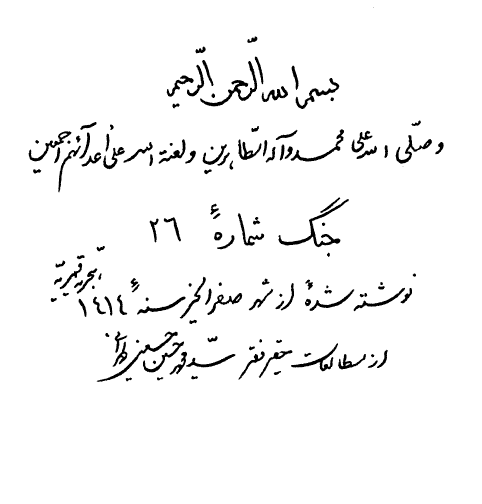 بسم الله الرّحمن الرّحيم
و صلّى الله على محمد و آله الطّاهرين و لعنة الله على أعدآئهم اجمعين
جنگ شمارهٔ ٢٦
نوشته شدهٔ از شهر صفر الخير سنهٔ ١٤١٤ هجريّه قمريّه
از مطالعات حقير فقير سيّد محمد حسين حسينى طهرانى